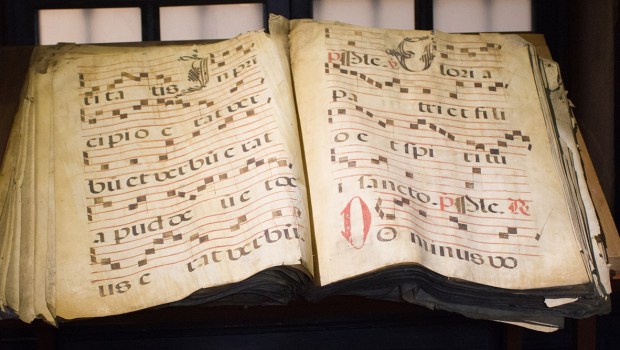 ti ta tis In pri
cipio e rat ver
bū et verbū e rat
apud de u et de
us e rat verbū.
Glori a
pa tri et fili
o et spi ri tui
sancto.
Do minus vo